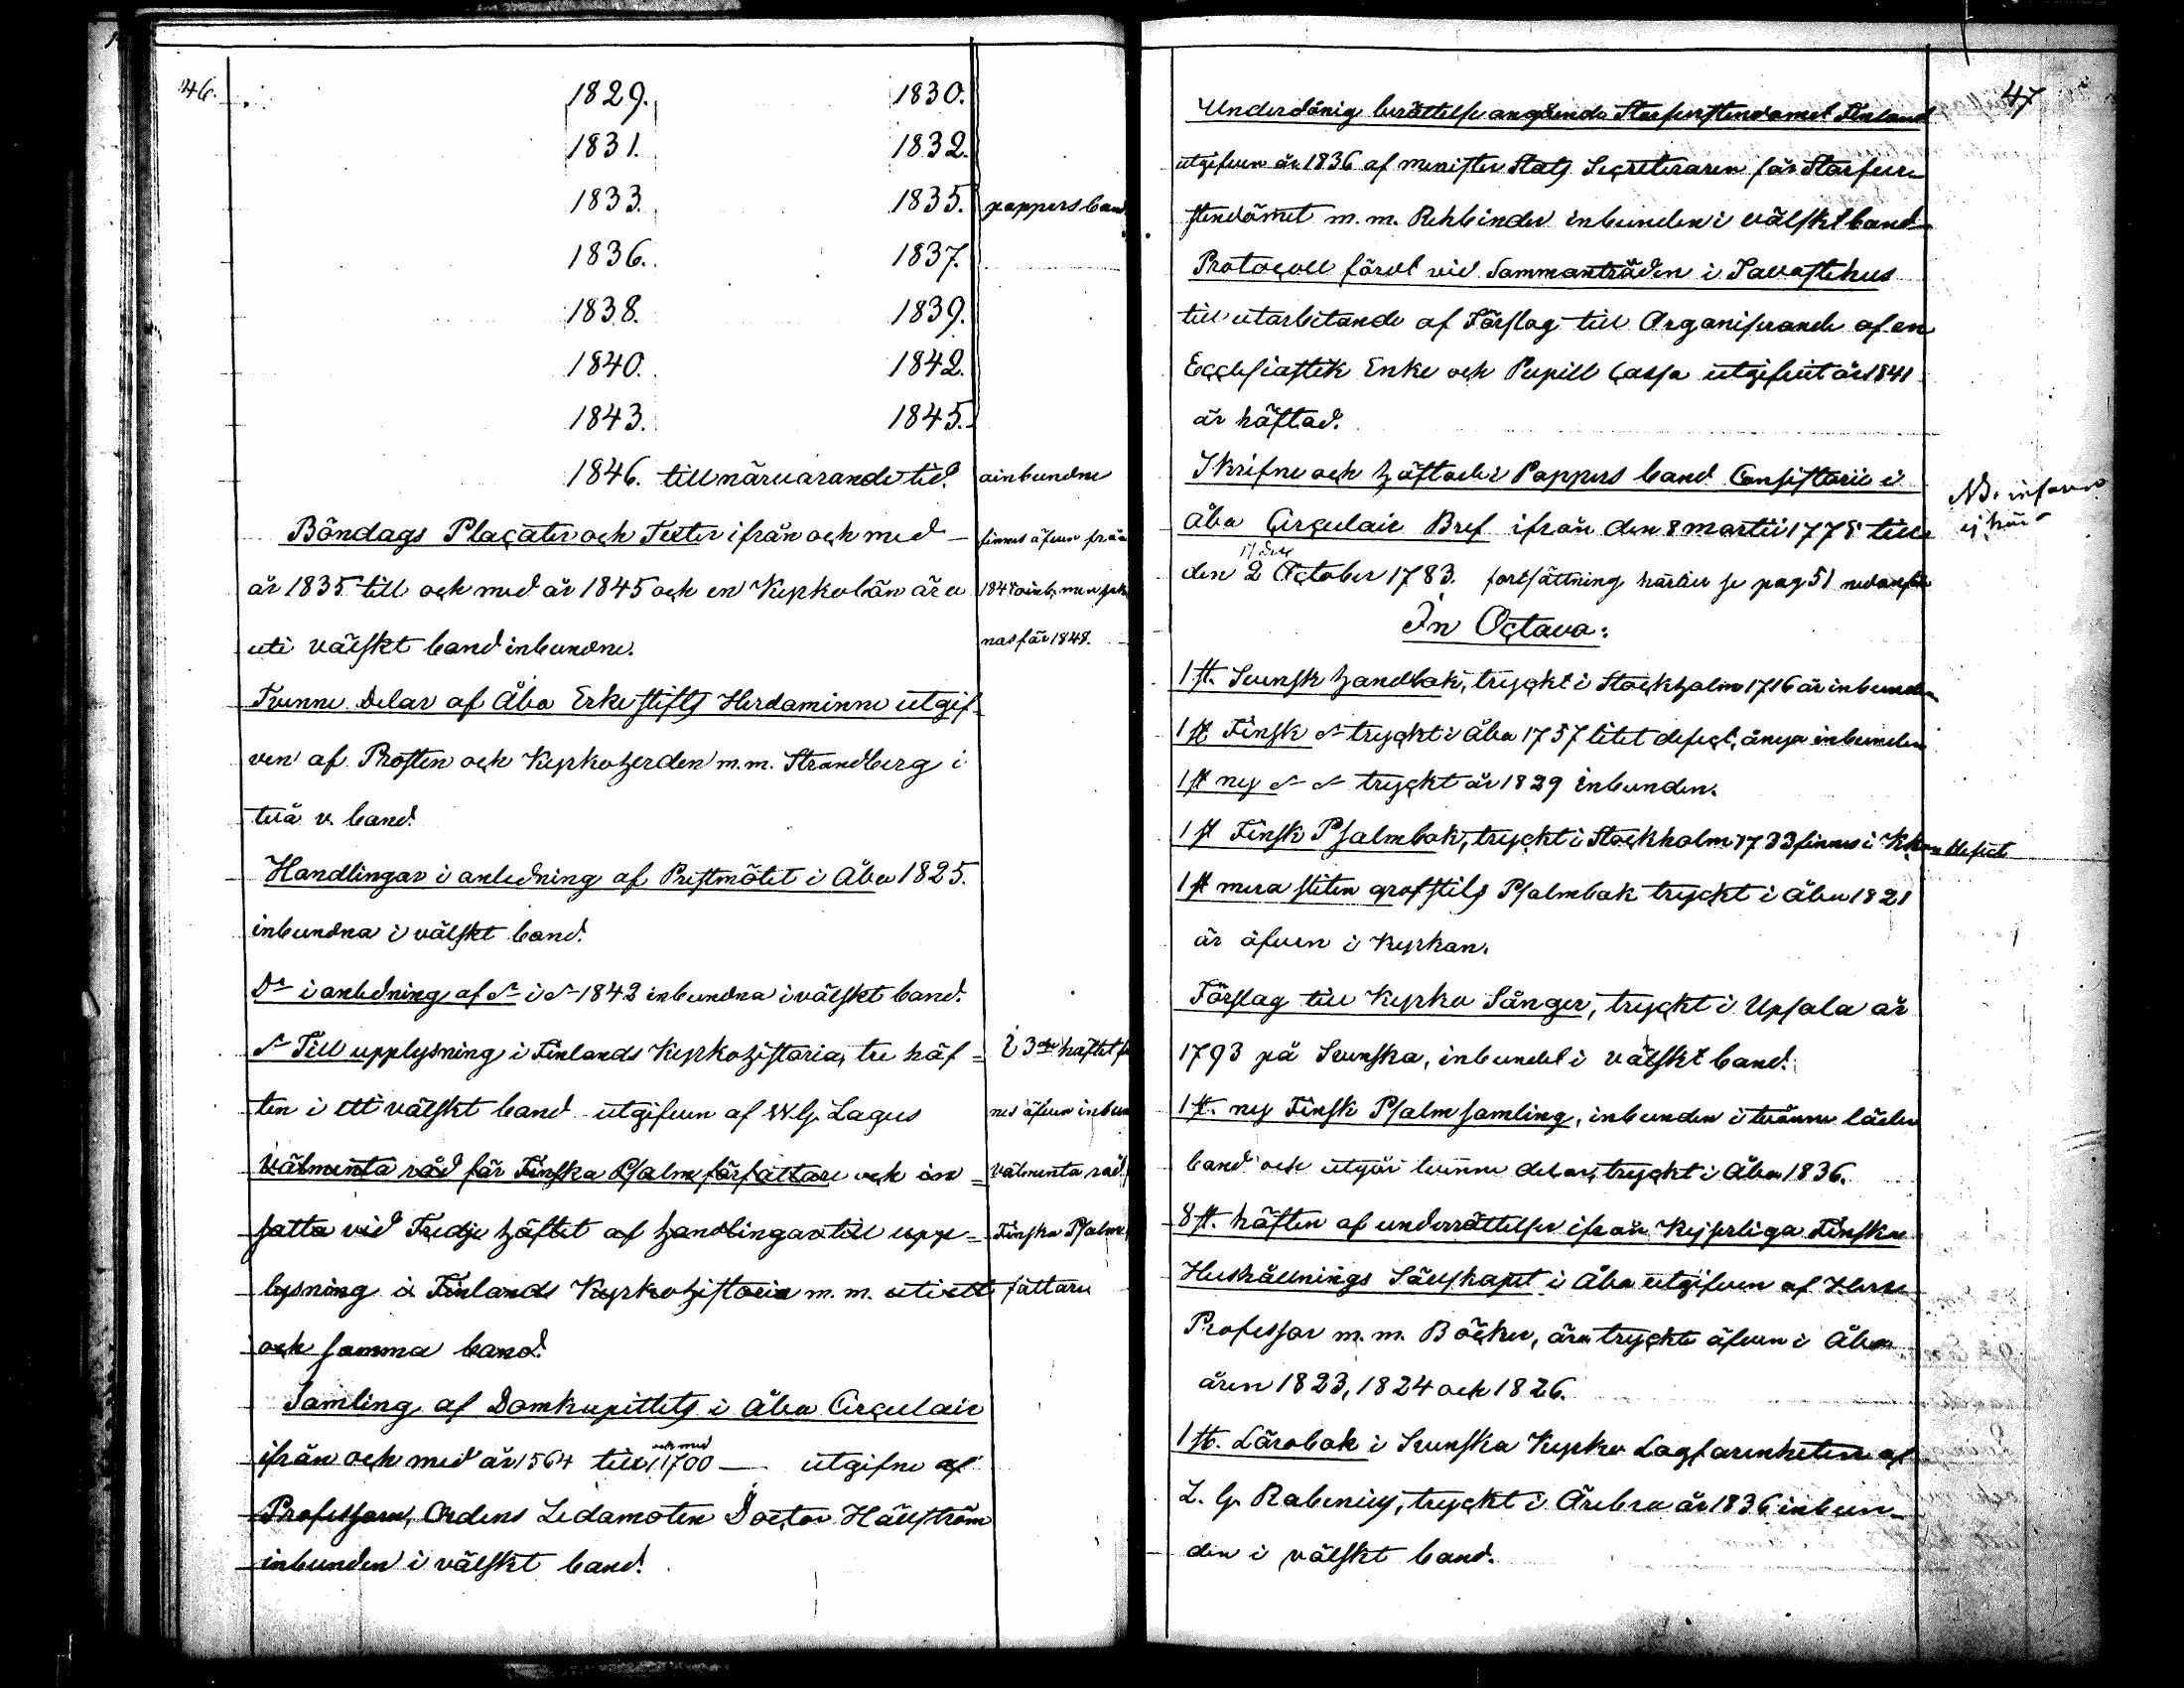 46.
1829. 1830.
1831. 1832.
1833. 1835. pappersband
1836. 1837.
1838. 1839.
1840. 1842.
1843. 1845.
1846. till närvarande tid. oinbundne
Böndags Placater och Texter ifrån och med – finnes äfven från
år 1835 till och med år 1845 och en Kyrkolän är
uti välskt band inbundne. nas för 1848.
Tvenne Delar af Åbo Erkestifts Herdaminne utgif-
ven af Prosten och Kyrkoherden m.m. Strandberg i
två v. band.
Handlingar i anledning af Prestmötet i Åbo 1825.
inbundna i välskt band.
Do i anledning af do i do 1842 inbundna i välskt band.
do Till upplysning i Finlands Kyrkohistoria, tre häf- i 3dje häftet fin
ten i ett välskt band utgifven af W.G. Lagus nes äfven inbun
Välmenta råd för Finska Psalmförfattare och in- välmenta råd
satta vid Tredje häftet af handlingar till upp- Finska Psalm
lysning i Finlands Kyrkohistoria m.m. uti ett fattare
och samma band.
Samling af Domkapittlets i Åbo Circulair
ifrån och med år 1564 till och med 1700 — utgifne af
Professorn, Ordens Ledamoten Doctor Hällström
inbunden i välskt band.
47
Underdånig berättelse angående Storfurstendömet Finland
utgifven år 1836 af Minister Stats Secreteraren för Storfur-
stendömet m.m. Rehbinder inbunden i välskt band
Protocoll fördt vid Sammanträden i Tavastehus
till utarbetande af Förslag till Organiserande af en
Ecclesiastik Enke och Pupill Cassa utgifvit år 1841
är häftad.
Skrifne och häftade i Pappers band Consistorii i NB. införas
Åbo Circulair Bref ifrån den 8 Martii 1775 till ej här
den 2 October 1783. fortsättning härtill se pag 51 nedanför
In Octava:
1 st. Svensk handbok, tryckt i Stockholm 1716 är inbunden
1 st Finsk do tryckt i Åbo 1757 litet defect, ånyo inbunden
1 st ny do do tryckt år 1829 inbunden.
1 st Finsk Psalmbok, tryckt i Stockholm 1733 finnes i Kkan defect
1 st mera sliten grofstils Psalmbok tryckt i Åbo 1821
är äfven i Kyrkan.
Förslag till Kyrko Sånger, tryckt i Upsala år
1793 på Svenska, inbundet i välskt band.
1 st. ny Finsk Psalmsamling, inbunden i tvänne läder
band och utgör tvenne delar, tryckt i Åbo 1836.
8 st. häften af underrättelser ifrån Kejserliga Finska
Hushållnings Sällskapet i Åbo utgifven af Herr
Professor m.m. Böcker, äro tryckte äfven i Åbo
åren 1823, 1824 och 1826.
1 st. Lärobok i Svenska Kyrko Lagfarenheten af
L. G. Rabenius, tryckt i Örebro år 1836 inbun-
den i välskt band.